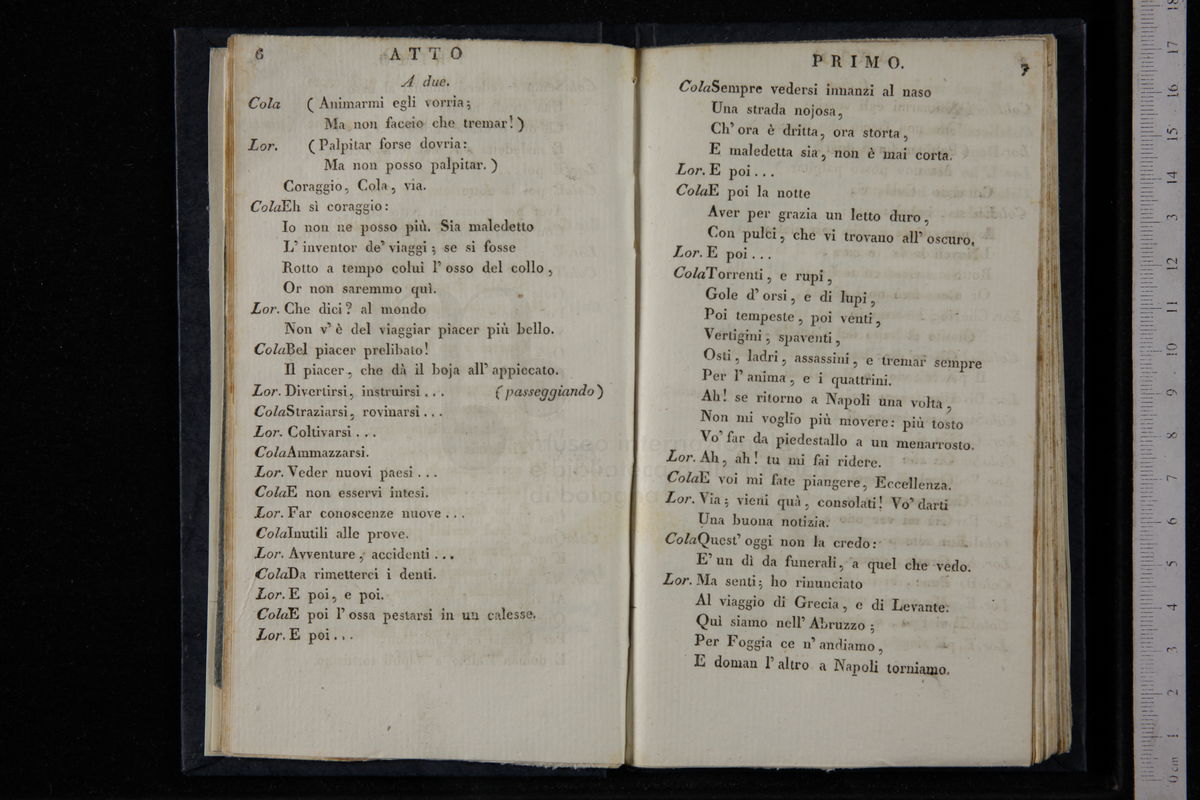 6 ATTO
A due.
Cola ( Animarmi egli vorria;
Ma non faccio che tremar! )
Lor. ( Palpitar forse dovria:
Ma non posso palpitar. )
Coraggio, Cola, via.
Cola Eh sì coraggio:
Io non ne posso più. Sia maledetto
L' inventor de' viaggi; se si fosse
Rotto a tempo colui l' osso del collo,
Or non saremmo quì.
Lor. Che dici? al mondo
Non v' è del viaggiar piacer più bello.
Cola Bel piacer prelibato!
Il piacer, che dà il boja all' appiccato.
Lor. Divertirsi, instruirsi... ( passeggiando )
Cola Straziarsi, rovinarsi...
Lor. Coltivarsi...
Cola Ammazzarsi.
Lor. Veder nuovi paesi...
Cola E non esservi intesi.
Lor. Far conoscenze nuove...
Cola Inutili alle prove.
Lor. Avventure, accidenti...
Cola Da rimetterci i denti.
Lor. E poi, e poi.
Cola E poi l' ossa pestarsi in un calesse.
Lor. E poi...
PRIMO. 7
Cola Sempre vedersi innanzi al naso
Una strada nojosa,
Ch' ora è dritta, ora storta,
E maledetta sia, non è mai corta.
Lor. E poi...
Cola E poi la notte
Aver per grazia un letto duro,
Con pulci, che vi trovano all' oscuro.
Lor. E poi...
Cola Torrenti, e rupi,
Gole d' orsi, e di lupi,
Poi tempeste, poi venti,
Vertigini; spaventi,
Osti, ladri, assassini, e tremar sempre
Per l' anima, e i quattrini.
Ah! se ritorno a Napoli una volta,
Non mi voglio più movere: più tosto
Vo' far da piedestallo a un menarrosto.
Lor. Ah, ah! tu mi fai ridere.
Cola E voi mi fate piangere, Eccellenza.
Lor. Via; vieni quà, consolati! Vo' darti
Una buona notizia.
Cola Quest' oggi non la credo:
E' un dì da funerali, a quel che vedo.
Lor. Ma senti; ho rinunciato
Al viaggio di Grecia, e di Levante.
Quì siamo nell' Abruzzo;
Per Foggia ce n' andiamo,
E doman l' altro a Napoli torniamo.